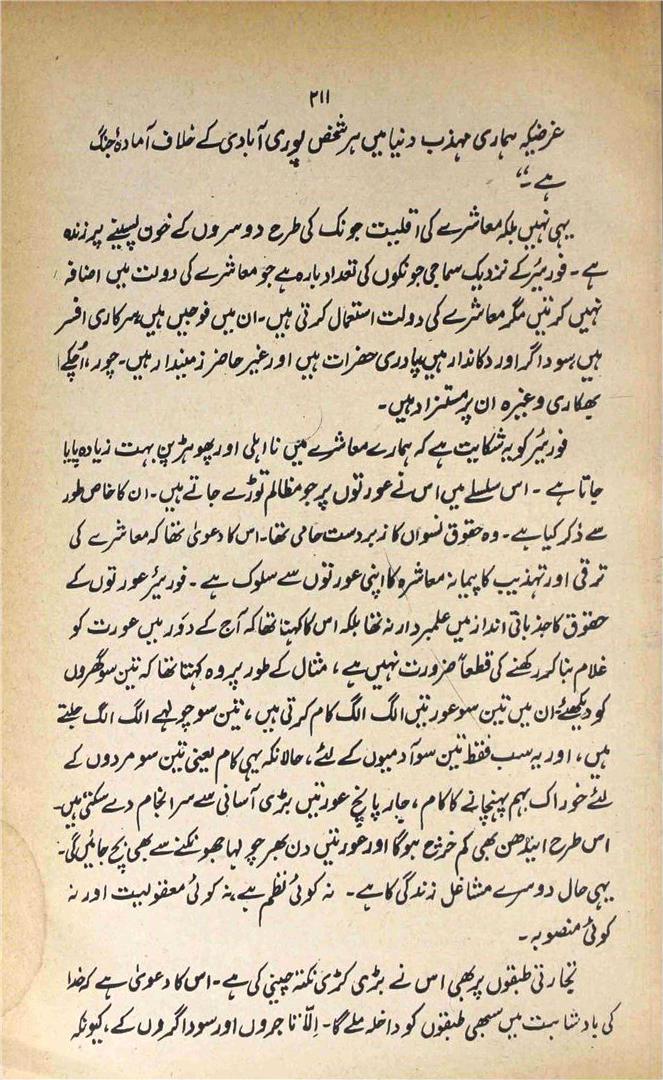 ۲۱۱
غرضیکہ ہماری مہذب دنیا میں ہر شخص پوری آبادی کے خلاف آمادۂ جنگ
ہے۔“
یہی نہیں بلکہ معاشرے کی اقلیت جونک کی طرح دوسروں کے خون پسینے پر زندہ
ہے۔ فوریئر کے نزدیک سماجی جونکوں کی تعداد بارہ ہے جو معاشرے کی دولت میں اضافہ
نہیں کرتیں مگر معاشرے کی دولت استعمال کرتی ہیں۔ ان میں فوجیں ہیں، سرکاری افسر
ہیں، سوداگر اور دکاندار ہیں، پادری حضرات ہیں اور غیر حاضر زمیندار ہیں۔ چور، اُچکے،
بھکاری وغیرہ ان پر مستزاد ہیں۔
فوریئر کو یہ شکایت ہے کہ ہمارے معاشرے میں نا اہلی اور پھوہڑپن بہت زیادہ پایا
جاتا ہے۔ اس سلسلے میں اس نے عورتوں پر جو مظالم توڑے جاتے ہیں۔ ان کا خاص طور
سے ذکر کیا ہے۔ وہ حقوق نسواں کا زبردست حامی تھا۔ اس کا دعویٰ تھا کہ معاشرے کی
ترقی اور تہذیب کا پیمانہ معاشرہ کا اپنی عورتوں سے سلوک ہے۔ فوریئر عورتوں کے
حقوق کا جذباتی انداز میں علمبردار نہ تھا بلکہ اس کا کہنا تھا کہ آج کے دَور میں عورت کو
غلام بنا کر رکھنے کی قطعاً ضرورت نہیں ہے، مثال کے طور پر وہ کہتا تھا کہ تین سو گھروں
کو دیکھئے۔ ان میں تین سو عورتیں الگ الگ کام کرتی ہیں، تین سو چولہے الگ الگ جلتے
ہیں، اور یہ سب فقط تین سو آدمیوں کے لئے، حالانکہ یہی کام یعنی تین سو مردوں کے
لئے خوراک بہم پہنچانے کا کام، چار پانچ عورتیں بڑی آسانی سے سرانجام دے سکتی ہیں۔
اس طرح ایندھن بھی کم خرچ ہوگا اور عورتیں دن بھر چولہا جھونکنے سے بھی بچ جائیں گی۔
یہی حال دوسرے مشاغل زندگی کا ہے۔ نہ کوئی نظم ہے، نہ کوئی معقولیت اور نہ
کوئی منصوبہ۔
تجارتی طبقوں پر بھی اس نے بڑی کڑی نکتہ چینی کی ہے۔ اس کا دعویٰ ہے کہ خدا
کی بادشاہت میں سبھی طبقوں کو داخلہ ملے گا۔ اِلّا تاجروں اور سوداگروں کے، کیونکہ